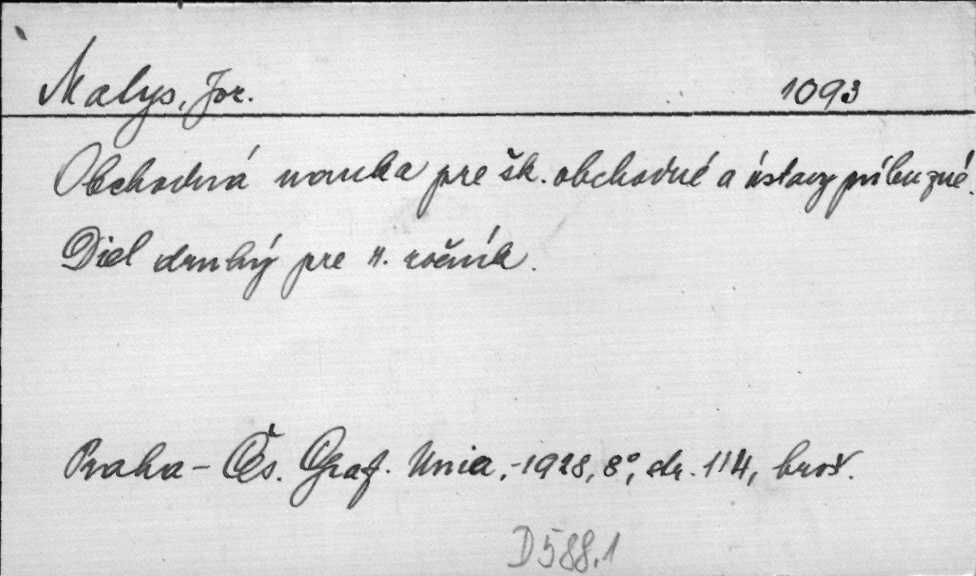 Malys, Jor. 1093
Obchodná nauka pre šk. obchodné a ústavy príbuzné.
Diel druhý pre II. ročník.
Praha - Čs. Graf. Unia, - 1928, 8°, str. 114, brož.
D 588.1